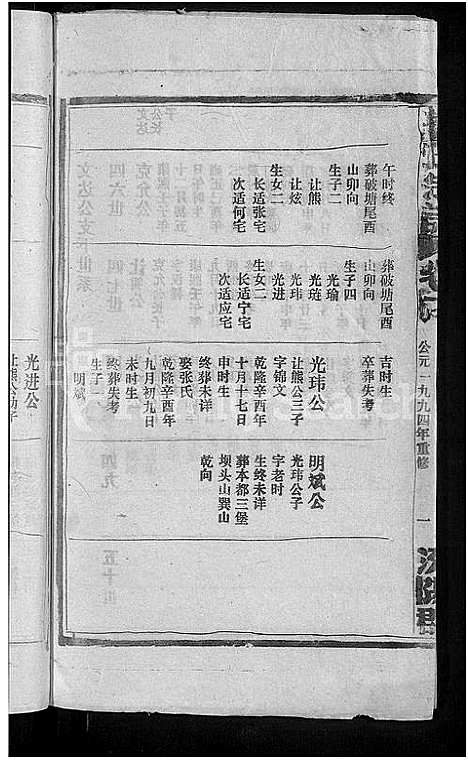 午时终
葬破塘尾酉
山卯向
生子二
让熊
让炫
生女二
长适张宅
次适何宅
葬破塘尾酉
山卯向
生子四
光瑜
光琏
光玮
光进
生女二
长适宁宅
次适应宅
吉时生
卒葬失考
光玮公
让熊公三子
字锦文
乾隆辛酉年
十月十七日
申时生
终葬未详
娶张氏
乾隆辛酉年
九月初九日
未时生
终葬失考
生子一
明斌
明斌公
光玮公子
字老时
生终未详
葬本都三堡
坝头山巽山
乾向
公元一九九四年重修
一
光进公